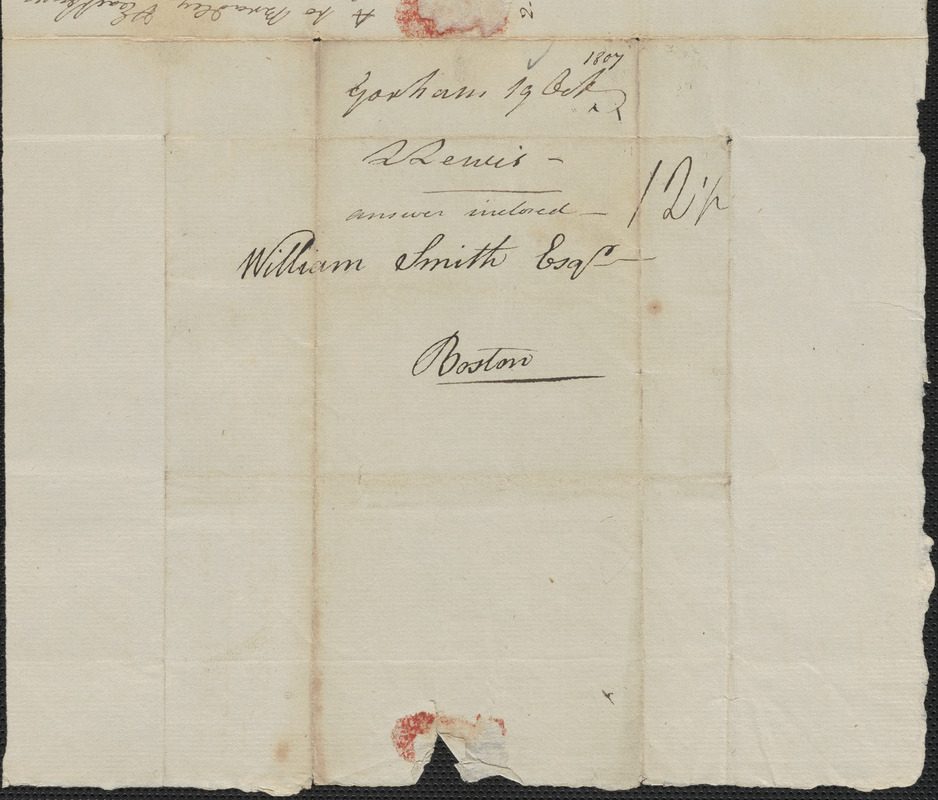 1807
Gorham 19 Oct
Lewis -
answer inclosed - 12½
William Smith Esqr
Boston
A to Bradley &
2